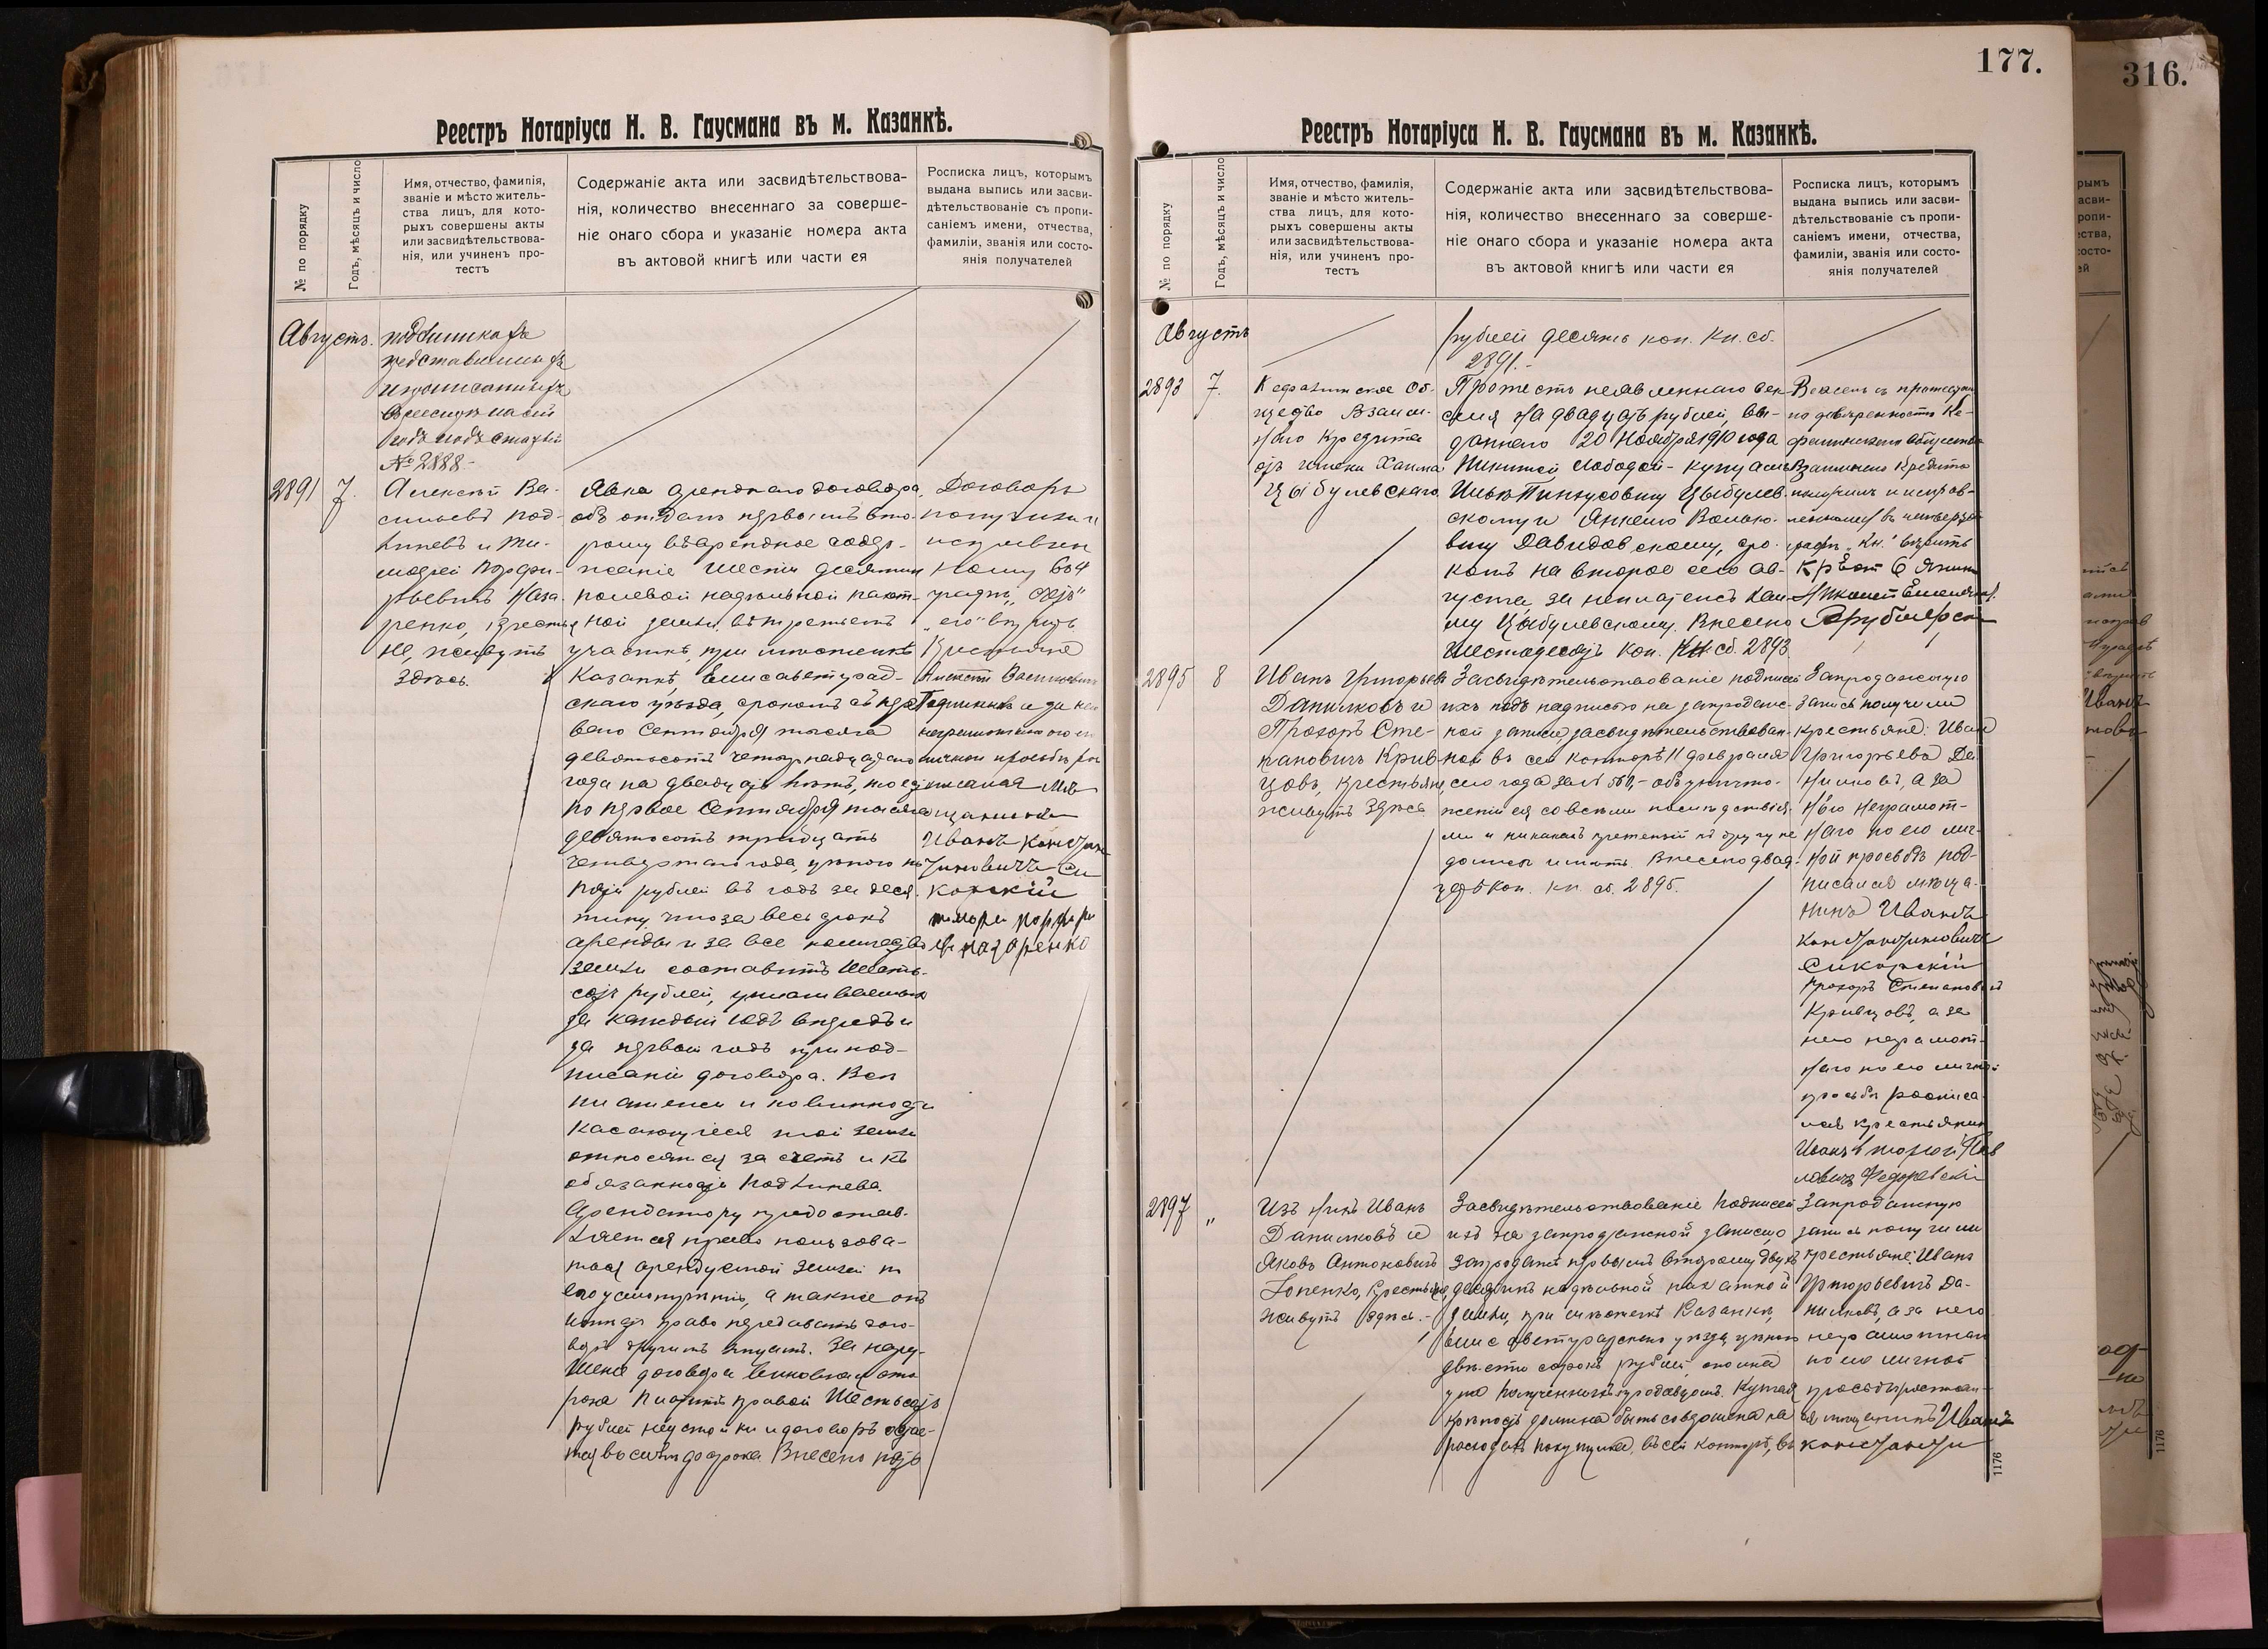 177.
316.
Реестръ Нотаріуса Н. В. Гаусмана въ м. Казанкѣ.
№ по порядку
Годъ, мѣсяцъ и число
Имя, отчество, фамилія,
званіе и мѣсто житель-
ства лицъ, для кото-
рыхъ совершены акты
или засвидѣтельствова-
нія, или учиненъ про-
тестъ
Содержаніе акта или засвидѣтельствова-
нія, количество внесеннаго за соверше-
ніе онаго сбора и указаніе номера акта
въ актовой книгѣ или части ея
Росписка лицъ, которымъ
выдана выпись или засви-
дѣтельствованіе съ пропи-
саніемъ имени, отчества,
фамиліи, званія или состо-
янія получателей
Августъ.
№ 2888-
2891
7.
Алексѣй Ва-
сильевъ Под-
линевъ и Ти-
мофей Порфи-
рьевичъ Наза-
ренко, крестья
не, живутъ
здѣсь.
Явка аренднаго договора
объ отдачѣ первымъ вто-
рому въ арендное содер-
жаніе шести десятин
полевой надѣльной пахат-
ной земли, въ третьемъ
участкѣ, при мѣстечкѣ
Казанкѣ, Елисаветград-
скаго уѣзда, срокомъ съ пер
ваго Сентября тысяча
девятьсотъ четырнадцатаго
года на двадцать лѣтъ, то есть
по первое Сентября тысяча
девятьсотъ тридцать
четвертаго года, цѣною по
пяти рублей въ годъ за деся-
тину что за весь срокъ
аренды и за все количество
земли составитъ шесть-
сотъ рублей, уплачиваемыхъ
за каждый годъ впередъ и
за первый годъ при под-
писаніи договора. Всѣ
платежи и повинности
касающіеся той земли
относятся за счетъ и къ
обязанности Подлинева.
Арендатору предостав-
ляется право пользова-
ться арендуемой землей по
его усмотрѣнію, а также онъ
имѣетъ право передавать дого-
воръ другимъ лицамъ. За нару-
шеніе договора виновная сто
рона платитъ правой шестьсотъ
рублей неустойки и договоръ остае-
тся въ силѣ до срока Внесено пять
Договоръ
получили
Крестьяне
Алексѣй Васильевичъ
Подлиневъ и за него
неграмотнаго по его
личной просьбѣ рос
писался Мѣ
щанинъ
Иванъ Конста
тиновичъ Си
корскій
тимофей порфири
ев назаренко
Реестръ Нотаріуса Н. В. Гаусмана въ м. Казанкѣ.
№ по порядку
Годъ, мѣсяцъ и число
Имя, отчество, фамилія,
званіе и мѣсто житель-
ства лицъ, для кото-
рыхъ совершены акты
или засвидѣтельствова-
нія, или учиненъ про-
тестъ
Содержаніе акта или засвидѣтельствова-
нія, количество внесеннаго за соверше-
ніе онаго сбора и указаніе номера акта
въ актовой книгѣ или части ея
Росписка лицъ, которымъ
выдана выпись или засви-
дѣтельствованіе съ пропи-
саніемъ имени, отчества,
фамиліи, званія или состо-
янія получателей
Августъ
рублей десять коп. Кн. сб.
2891.-
2893
7.
Общество Взаим-
наго Кредита
отъ имени Хаима
Цыбулевскаго
Протестъ неявленнаго век-
селя на двадцать рублей, вы-
даннаго 20 Ноября 1910 года
Никитой Лободой - купцамъ
Илькѣ Пинхусовичу Цыбулев-
скому и Янкелю Волько-
вичу Давидовскому, сро-
комъ на второе сего ав-
густа, за неплатежъ Хаи-
му Цыбулевскому. Внесено
шестьдесятъ коп. Кн сб. 2893
Вексель съ протестомъ
по довѣренности
Общества
Взаимнаго Кредита
получилъ
2895
8
Иванъ Григорьевъ
Данилковъ и
Прохоръ Сте-
пановичъ Крив-
цовъ, крестьяне,
живутъ здѣсь
Засвидѣтельствованіе подписей
ихъ подъ надписью на запродаж-
ной записи засвидѣтельствован-
ной въ сей конторѣ 11 февраля
сего года за № 560,- объ уничто-
женіи ея со всѣми послѣдствія-
ми и никакихъ претензій къ другу не
должны имѣть. Внесено двад-
цать коп. кн. сб. 2895.
Запродажную
запись получили
крестьяне: Иванъ
Григорьевъ Да
нилковъ, а за
него неграмот-
наго по его лич-
ной просьбѣ под-
писался мѣща-
нинъ Иванъ
Константиновичъ
Сикорскій
Прохоръ Степановичъ
Кривцовъ, а за
него неграмот-
наго по его личной
просьбѣ росписа-
лся крестьянин
Федоровскій
2897
"
Изъ нихъ Иванъ
Данилковъ и
Яковъ Антоновичъ
Крестьяне,
живутъ здѣсь.-
Засвидѣтельствованіе подписей
ихъ на запродажной записи о
запродажѣ первымъ второму двухъ
десятинъ надѣльной пахатной
земли, при мѣстечкѣ Казанкѣ,
Елисаветградскаго уѣзда, цѣною
двѣсти сорокъ рублей, сполна
уже полученныхъ продавцомъ. Купчая
крѣпость должна быть совершена на
расходы покупщика, въ сей конторѣ, въ
Запродажную
запись получили
крестьяне: Иванъ
Григорьевичъ Да-
нилковъ, а за него
неграмотнаго
по его личной
просьбѣ росписал-
ся мѣщанинъ Иванъ
Константи
1176
1176